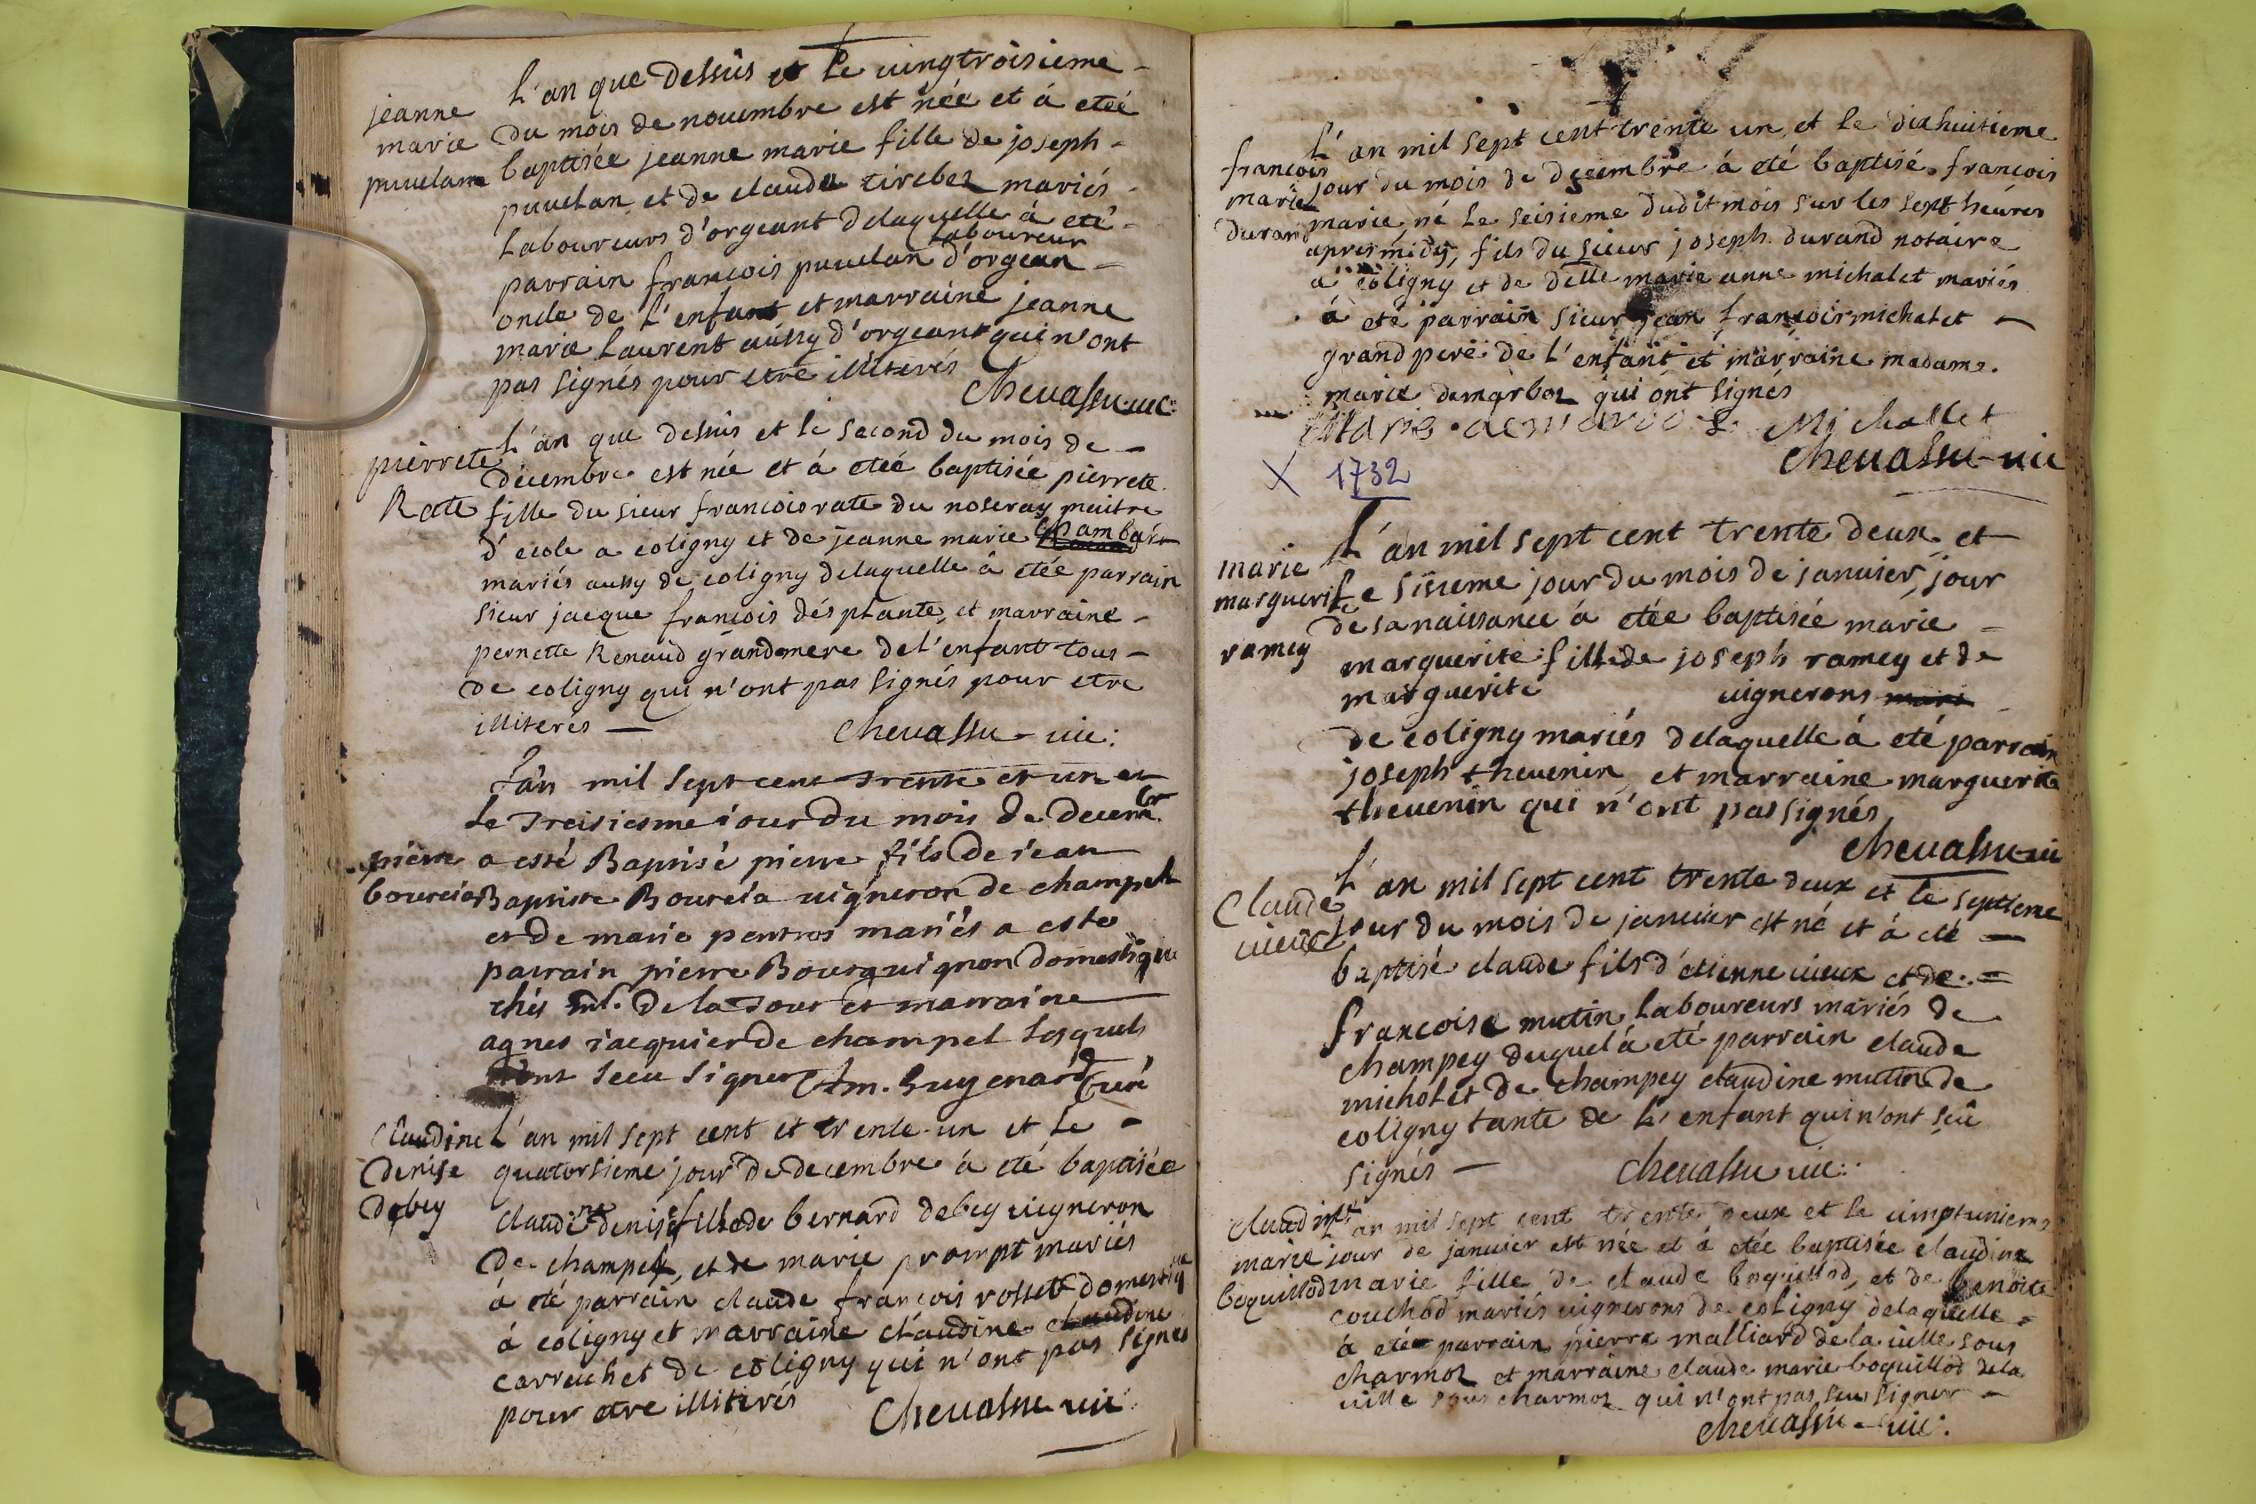 jeanne
marie
puvelan
L'an que dessus et le vingtroisieme
du mois de novembre est née et á eteé
baptisée jeanne marie fille de joseph
puvelan et de clauda tirebez mariés
Laboureurs d'orgeant delaquelle á eté
parrain francois puvelan laboureur d'orgean
oncle de l'enfant et marraine jeanne
marie Laurent aussy d'orgeant qui n'ont
pas signés pour etre illiterés
chevassu vic:
pierrete
Rate
L'an que dessus et le second du mois de
decembre est née et á eteé baptisée pierrete
fille du sieur francois rate du noseray maitre
d'ecole a coligny et de jeanne marie
mariés aussy de coligny delaquelle á etée parrain
sieur jacque francois désplante, et marraine
pernette Renaud grandemere de l'enfant tous
de coligny qui n'ont pas signés pour etre
illiterés
chevassu - vic:
pierre
bourcia
L'an mil sept cent trente et un et
le treisiesme iour du mois de decembr
a esté Baptisé pierre fils de iean
Baptiste Boursia vigneron de champel
et de marie pentros mariés a este
parrain pierre Bourguignon domestique
chés mr. de la Tour et marraine
agnes iacquier de champel lesquels
n'ont sceu signer Guyenard Curé
Claudine
Denise
Debey
L'an mil sept cent et trente un et le
quatorsieme jour de decembre á eté baptisée
claudine denise fille de bernard debey vigneron
de champel, et de marie prompt mariés
á eté parrain claude francois rosset domestique
á coligny et marraine claudine claudine
carruchet de coligny qui n'ont pas signes
pour etre illiterés chevassu vic:
francois
marie
durand
L'an mil sept cent trente un, et le dixhuitieme
jour du mois de decembre á eté baptisé francois
marie, né le seisieme dudit mois sur les sept heures
apres midy, fils du sieur joseph durand notaire
a coligny et de delle marie anne michalet mariés
á eté parrain sieur jean francois michalet
grand pere de l'enfant et marraine madame
marie demarboz qui ont signés
Michallet
chevassu vic
X 1732
marie
marguerite
ramey
L'an mil sept cent trente deux, et
le sisieme jour du mois de janvier, jour
de sa naissance á etée baptisée marie
marguerite fille de joseph ramey et de
marguerite vignerons mari
de coligny mariés delaquelle á eté parrain
joseph thevenin et marraine marguerite
thevenin qui n'ont pas signés
chevassu vic
Claude
vieux
L'an mil sept cent trente deux et le septieme
jour du mois de janvier est né et á eté
baptisé claude fils d'etienne vieux et de
francoise mutin, laboureurs mariés de
champey duquel á eté parrain claude
micholet de champey claudine mutin de
coligny tante de l'enfant qui n'ont sçu
signés
chevassu vic:
claudine
marie
boquillod
L'an mil sept cent trente deux et le vingtunieme
jour de janvier est née et á etée baptisée claudine
marie fille de claude boquillod, et de benoite
couchod mariés vignerons de coligny delaquelle
á eté parrain pierre malliard de la ville sous
charmoz et marraine claude marie boquillod de la
ville sous charmoz qui n'ont pas sceu signer
chevassu - vic: